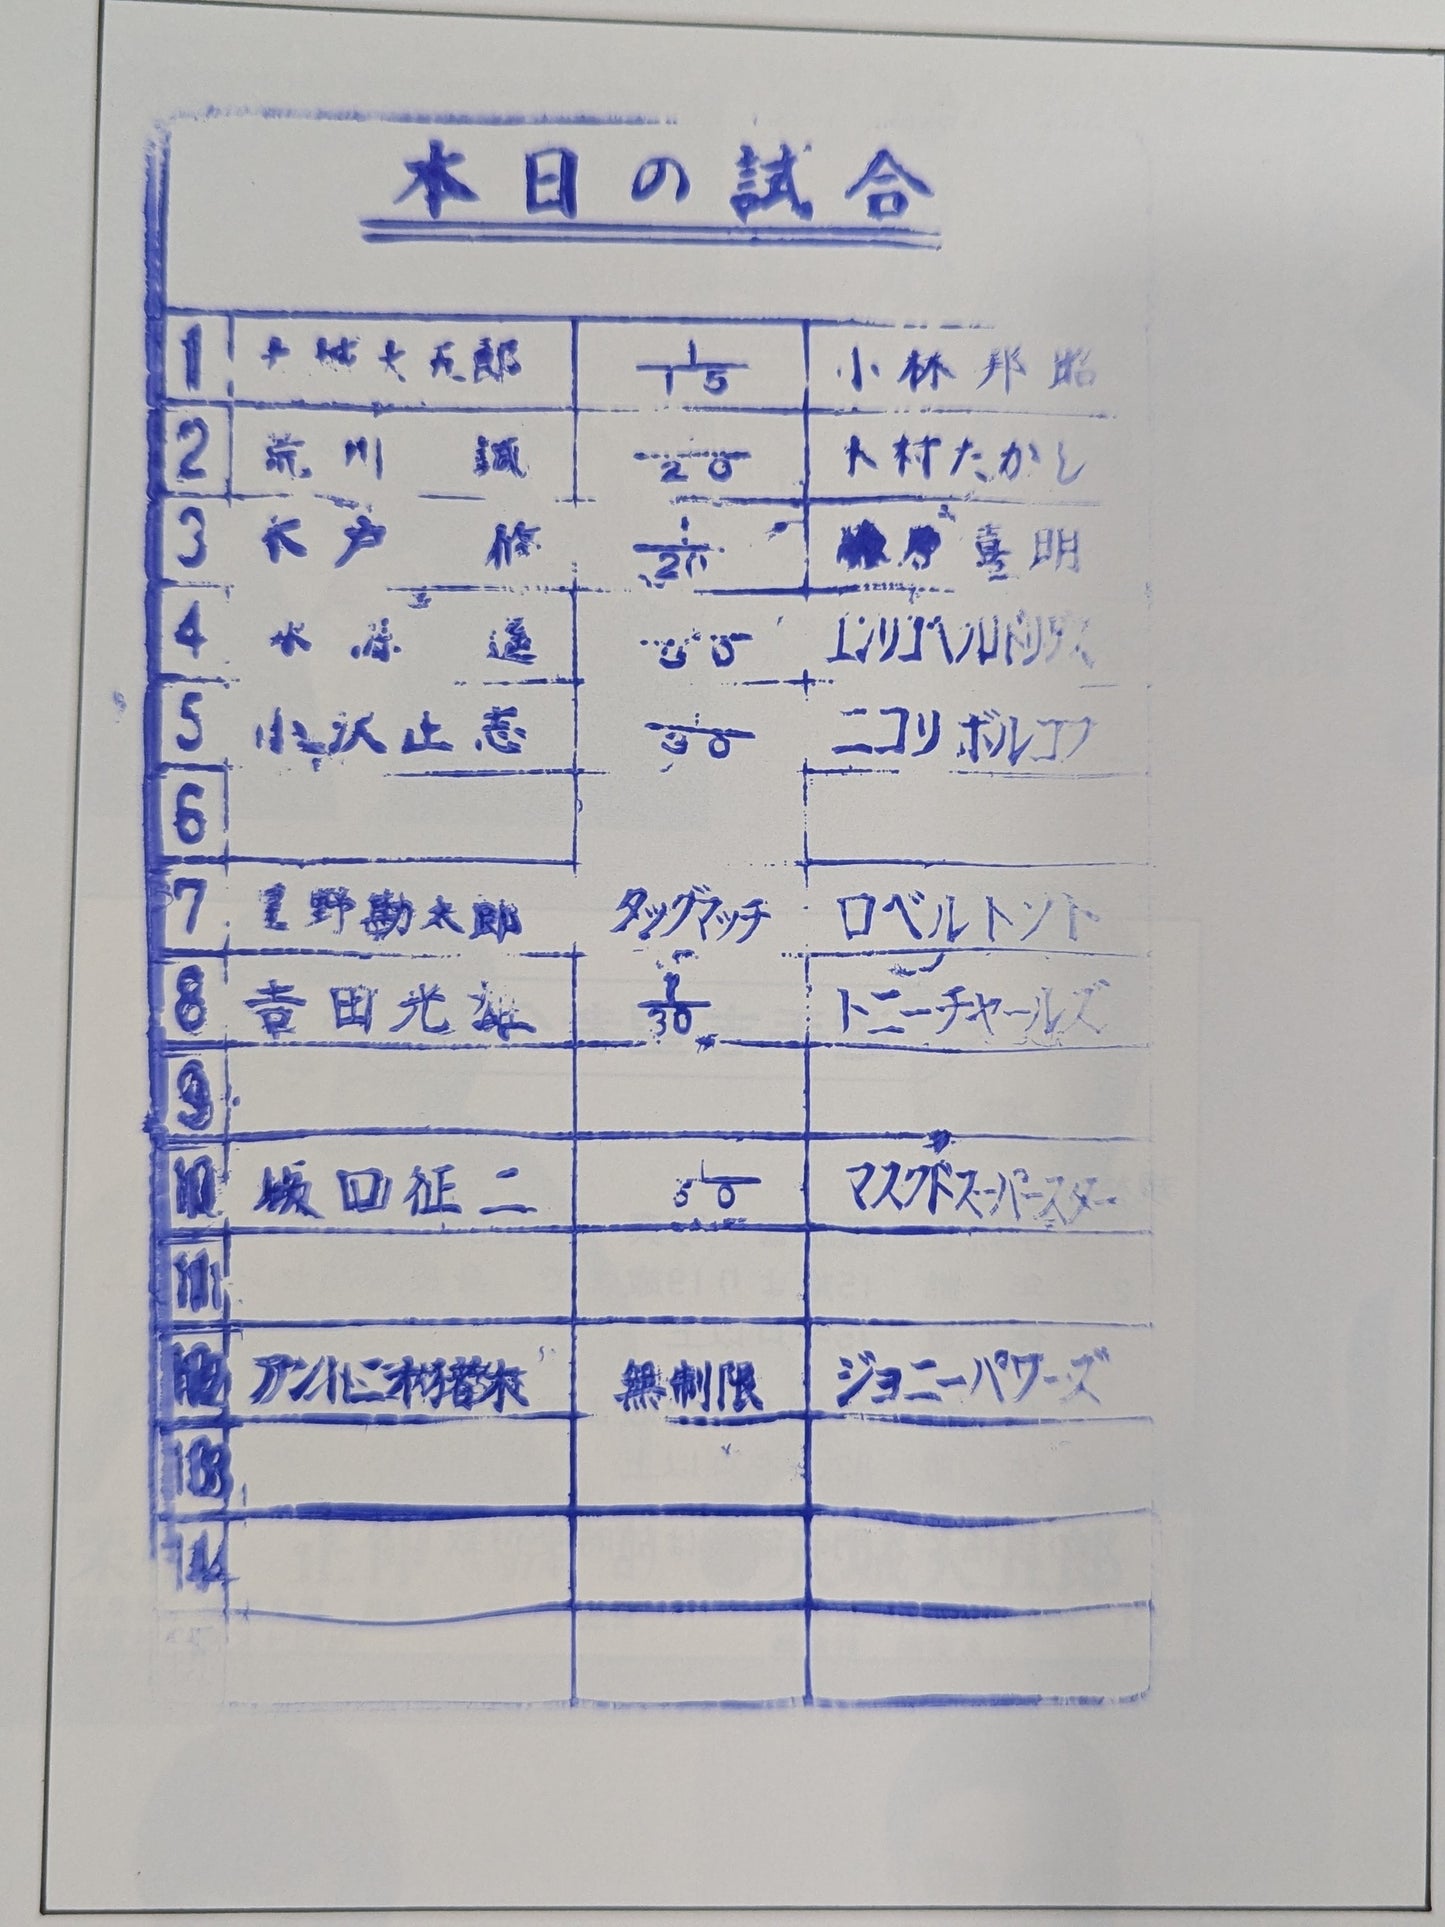 本日の試合
1 大五郎 1/15 小林邦昭
2 荒川 誠 20 木村たかし
3 木戸 修 1/20 喜明
4 永源 遥 30 エンリコベルドリアス
5 小沢正志 1/30 ニコリボルコフ
6
7 星野勘太郎 タッグマッチ ロベルトソト
8 吉田光雄 1/30 トニーチャールズ
9
10 坂口征二 1/50 マスクドスーパースター
11
12 アントニオ猪木 無制限 ジョニーパワーズ
13
14